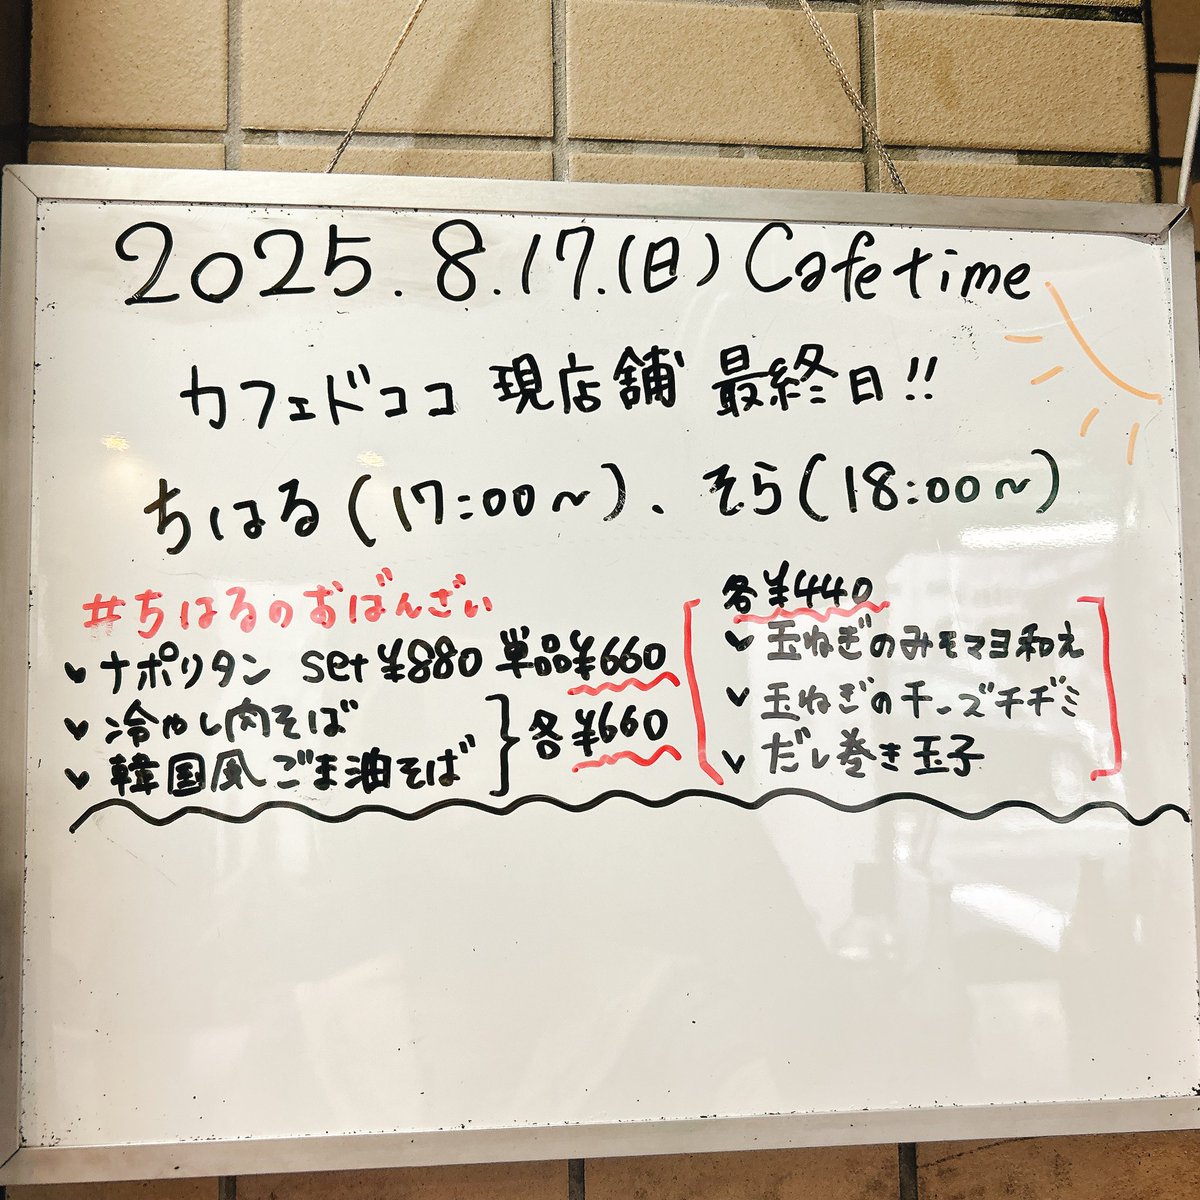 2025.8.17.(日) Cafe time
カフェドココ 現店舗 最終日!!
ちはる(17:00〜)、そら(18:00〜)
#ちはるのおばんざい
ナポリタン set ¥880 単品¥660
冷やし肉そば
韓国風ごま油そば
各¥660
各¥440
玉ねぎのみそマヨ和え
玉ねぎのチーズチヂミ
だし巻き玉子